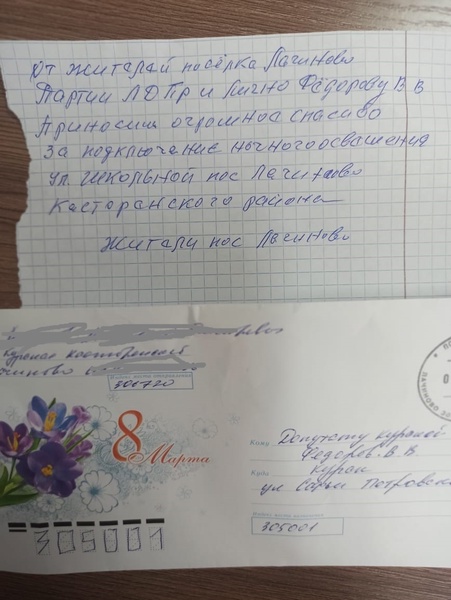 От жителай посёлка Лачиново
Партии ЛДПр и Лично Фёдорову В В
Приносим огромное спасибо
За подключение ночного освашения
ул. Школьной пос Лачиново
Касторанского района
Жители пос Лачиново
Курская
306720
8
Марта
Кому Депутату курской
Федоров. В. В
Куда Курск
ул Софьи Петровск
305001
305001